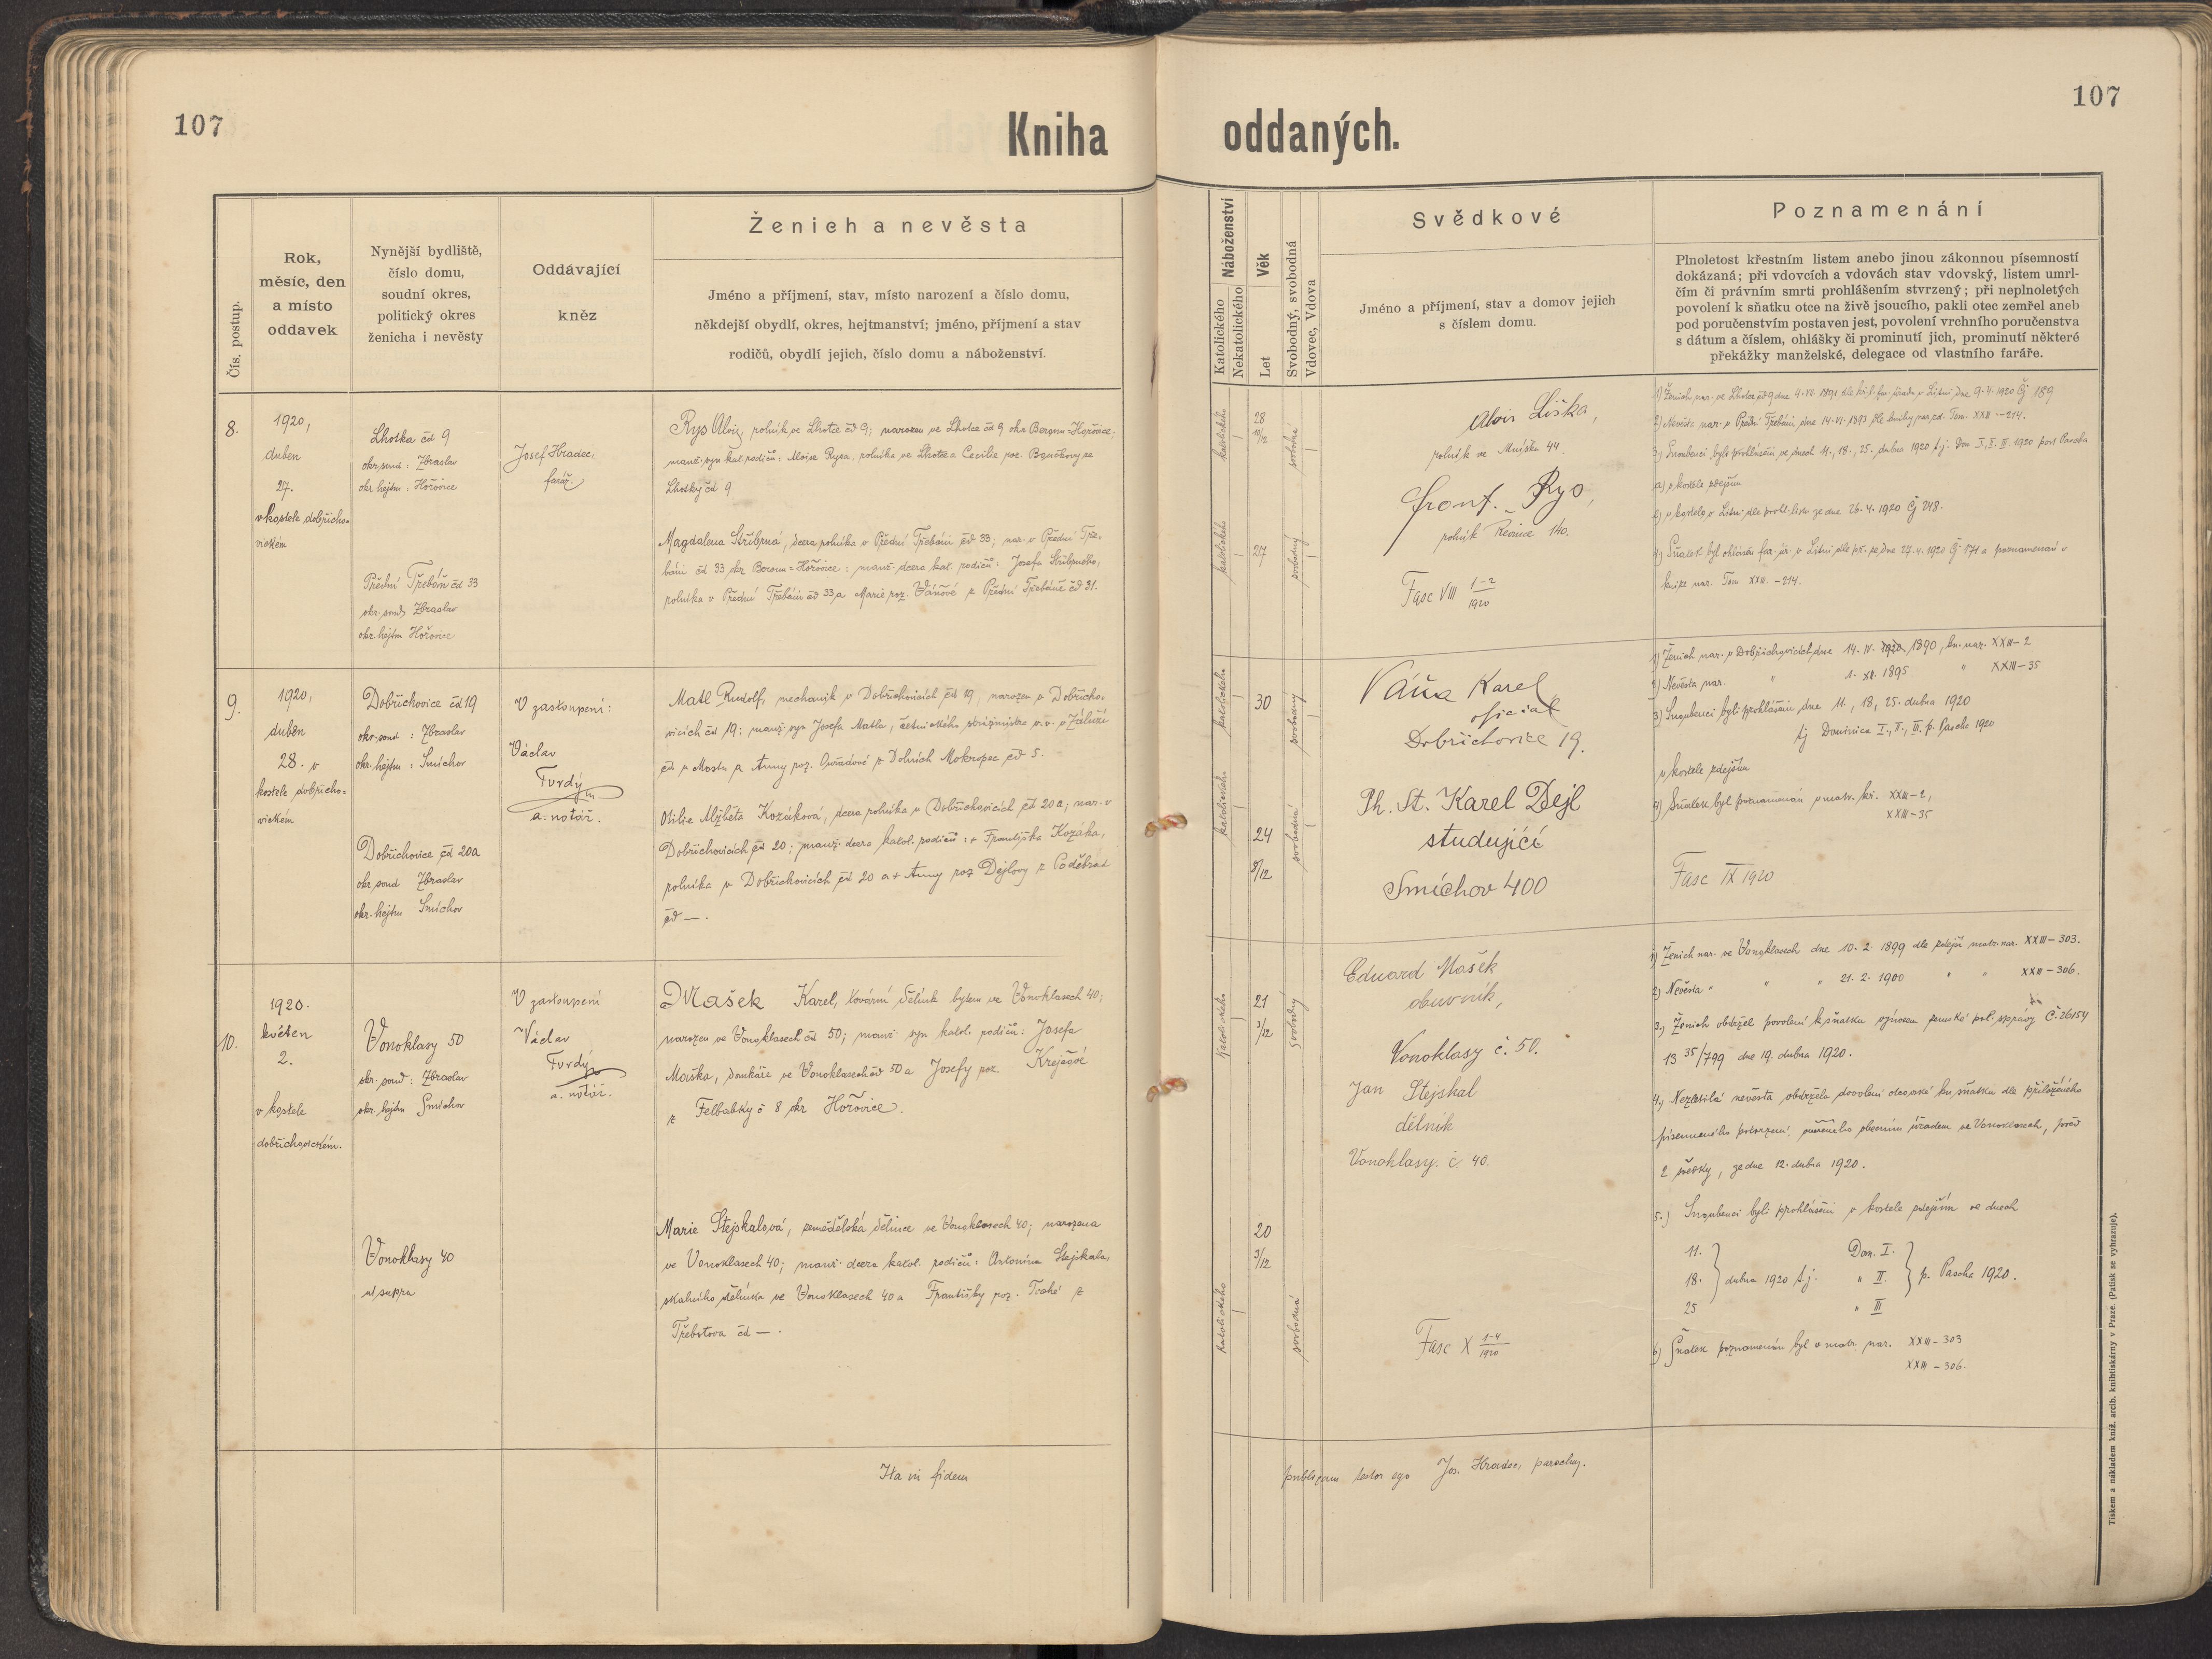 107
Kniha
oddaných.
107
Čís. postup.
Rok,
měsíc, den
a místo
oddavek
Nynější bydliště,
číslo domu,
soudní okres,
politický okres
ženicha i nevěsty
Oddávající
kněz
Ženich a nevěsta
Jméno a příjmení, stav, místo narození a číslo domu,
někdejší obydlí, okres, hejtmanství; jméno, příjmení a stav
rodičů, obydlí jejich, číslo domu a náboženství.
Náboženství
Katolického
Nekatolického
Věk
Let
Svobodný, svobodná
Vdovec, Vdova
Svědkové
Jméno a příjmení, stav a domov jejich
s číslem domu.
Poznamenání
Plnoletost křestním listem anebo jinou zákonnou písemností
dokázaná; při vdovcích a vdovách stav vdovský, listem umrl-
čím či právním smrti prohlášením stvrzený; při neplnoletých
povolení k sňatku otce na živě jsoucího, pakli otec zemřel aneb
pod poručenstvím postaven jest, povolení vrchního poručenstva
s dátum a číslem, ohlášky či prominutí jich, prominutí některé
překážky manželské, delegace od vlastního faráře.
8.
1920,
duben
27.
v kostele dobřicho-
vickém
Lhotka čd 9
okr. soud: Zbraslav
okr. hejtm: Hořovice
Přední Třebáň čd 33
okr. soud Zbraslav
okr. hejtm Hořovice
Josef Hradec,
farář.
Rys Alois, rolník ve Lhotce čd 9; narozen ve Lhotce čd 9 okr Beroun-Hořovice;
manž. syn kat. rodičů: Aloise Rysa, rolníka ve Lhotce a Cecilie roz. ze
Lhotky čd 9
Magdalena Stříbrná, dcera rolníka v Přední Třebáni čd 33; nar. v Přední Tře-
báni čd 33 okr Beroun-Hořovice: manž. dcera kat. rodičů: Josefa Stříbrného,
rolníka v Přední Třebáni čd 33, a Marie roz. Váňové z Přední Třebáně čd 31.
katolického
28
10/12
svobodný
katolického
27
svobodný
Alois Liška,
rolník ve Mníšku 44.
Front. Rys,
rolník Řevnice 140.
Fasc VIII 1-2/1920
1) Ženich nar. ve Lhotce čd 9 dne 4. VI. 1891 dle úřadu v Litni dne 9. V. 1920 Čj 189
2) Nevěsta nar. v Přední Třebáni dne 14. VI. 1893 dle knihy nar. zd. Tom. XXII - 214.
3) Snoubenci byli prohlášeni ve dnech 11., 18., 25. dubna 1920 t.j. Dom I., II. III 1920 post Pascha
a) v kostele zdejším
b) v kostele v Litni dle prohl. listu ze dne 26. 4. 1920 Čj 248.
4) Sňatek byl ohlášen far. úř. v Litni dle př. ze dne 27. 4. 1920 Čj 171 a poznamenán v
knize nar. Tom XXII. - 214.
9.
1920,
duben
28. v
kostele dobřicho-
vickém
Dobřichovice čd 19
okr. soud: Zbraslav
okr. hejtm: Smíchov
Dobřichovice čd 20a
okr. soud Zbraslav
okr. hejtm Smíchov
V zastoupení:
Václav
Tvrdý
a. notář.
Matl Rudolf, mechanik v Dobřichovicích čd 19, narozen v Dobřicho-
vicích čd 19; manž. syn Josefa Matla, četnického strážmistra v. v. v Záluží
čd u Mostu a Anny roz. z Dolních Mokropec čd 5.
Otilie Alžběta Kozáková, dcera rolníka v Dobřichovicích čd 20a; nar. v
Dobřichovicích čd 20; manž. dcera katol. rodičů: + Františka Kozáka,
rolníka v Dobřichovicích čd 20 a + Anny roz Dejlovy z Poděbrad
čd —.
katolického
30
svobodný
katolického
24
5/12
svobodná
Váňa Karel
oficial
Dobřichovice 19.
Ph. St. Karel Dejl
studující
Smíchov 400
1) Ženich nar. v Dobřichovicích dne 14. IV. 1920 1890, kn. nar. XXIII - 2
2) Nevěsta nar. " 1. XI. 1895 " XXIII - 35
3) Snoubenci byli prohlášeni dne 11., 18, 25. dubna 1920
tj Dominica I., II., III. p. Pascha 1920
v kostele zdejším
4) Sňatek byl poznamenán v matr. kř. XXIII - 2,
XXIII - 35
Fasc IX 1920
10.
1920.
květen
2.
v kostele
dobřichovickém.
Vonoklasy 50
okr. soud: Zbraslav
okr. hejtm Smíchov
Vonoklasy 40
ut supra
V zastoupení
Václav
Tvrdý
a. notář.
Mašek Karel, tovární dělník bytem ve Vonoklasech 40;
narozen ve Vonoklasech čd 50; manž. syn katol. rodičů: Josefa
Maška, domkáře ve Vonoklasech čd 50 a Josefy roz. Krejčové
z Felbabky č 8 okr Hořovice.
Marie Stejskalová, zemědělská dělnice ve Vonoklasech 40; narozena
ve Vonoklasech 40; manž. dcera katol. rodičů: Antonína Stejskala,
skalního dělníka ve Vonoklasech 40 a Františky roz. z
Třebotova čd —.
Katolického
21
3/12
svobodný
20
3/12
Katolického
svobodná
Eduard Mašek
obuvník,
Vonoklasy č. 50.
Jan Stejskal
dělník
Vonoklasy. č. 40.
Fasc X 1-4/1920
1) Ženich nar. ve Vonoklasech dne 10. 2. 1899 dle zdejší matr. nar. XXIII - 303.
2) Nevěsta " " " 21. 2. 1900 " " XXIII - 306.
3.) Ženich obdržel povolení k sňatku výnosem zemské pol. správy č. 26154
13 35/799 dne 19. dubna 1920.
4.) Nezletilá nevěsta obdržela dovolení otcovské ku sňatku dle přiloženého
písemného potvrzení, ověřeného obecním úřadem ve Vonoklasech, před
2 svědky, ze dne 12. dubna 1920.
5.) Snoubenci byli prohlášeni v kostele zdejším ve dnech
11. Dom. I.
18. dubna 1920 t.j. " II. p. Pascha 1920.
25 " III
6) Sňatek poznamenán byl v matr. nar. XXIII - 303
XXIII - 306.
Ita in fidem
publicam testor ego Jos. Hradec, parochus.
Tiskem a nákladem kníž. arcib. knihtiskárny v Praze. (Patisk se vyhrazuje).